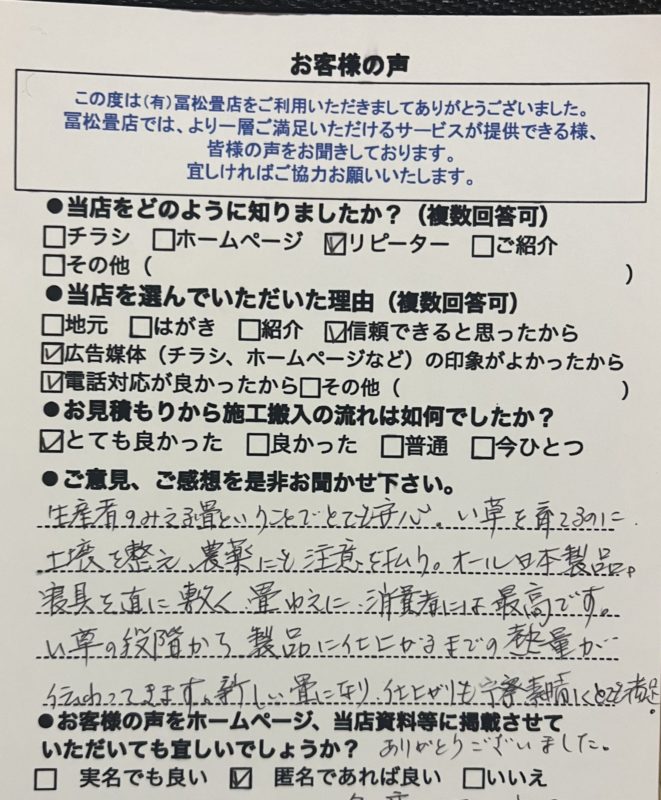 お客様の声
この度は(有)冨松畳店をご利用いただきましてありがとうございました。
冨松畳店では、より一層ご満足いただけるサービスが提供できる様、
皆様の声をお聞きしております。
宜しければご協力お願いいたします。
●当店をどのように知りましたか？（複数回答可）
□チラシ □ホームページ ☑リピーター □ご紹介
□その他（ ）
●当店を選んでいただいた理由（複数回答可）
□地元 □はがき □紹介 ☑信頼できると思ったから
☑広告媒体（チラシ、ホームページなど）の印象がよかったから
☑電話対応が良かったから□その他（ ）
●お見積もりから施工搬入の流れは如何でしたか？
☑とても良かった □良かった □普通 □今ひとつ
●ご意見、ご感想を是非お聞かせ下さい。
生産者のみえる畳ということでとても安心。い草を育てるのに
土壌を整え、農薬にも注意を払う。オール日本製品。
寝具を直に敷く畳ゆえに、消費者には最高です。
い草の段階から製品に仕上がるまでの熱量が
伝わってきます。新しい畳になり、仕上がりも 素晴しくとても満足。
●お客様の声をホームページ、当店資料等に掲載させて
いただいても宜しいでしょうか？ ありがとうございました。
□ 実名でも良い ☑ 匿名であれば良い □いいえ